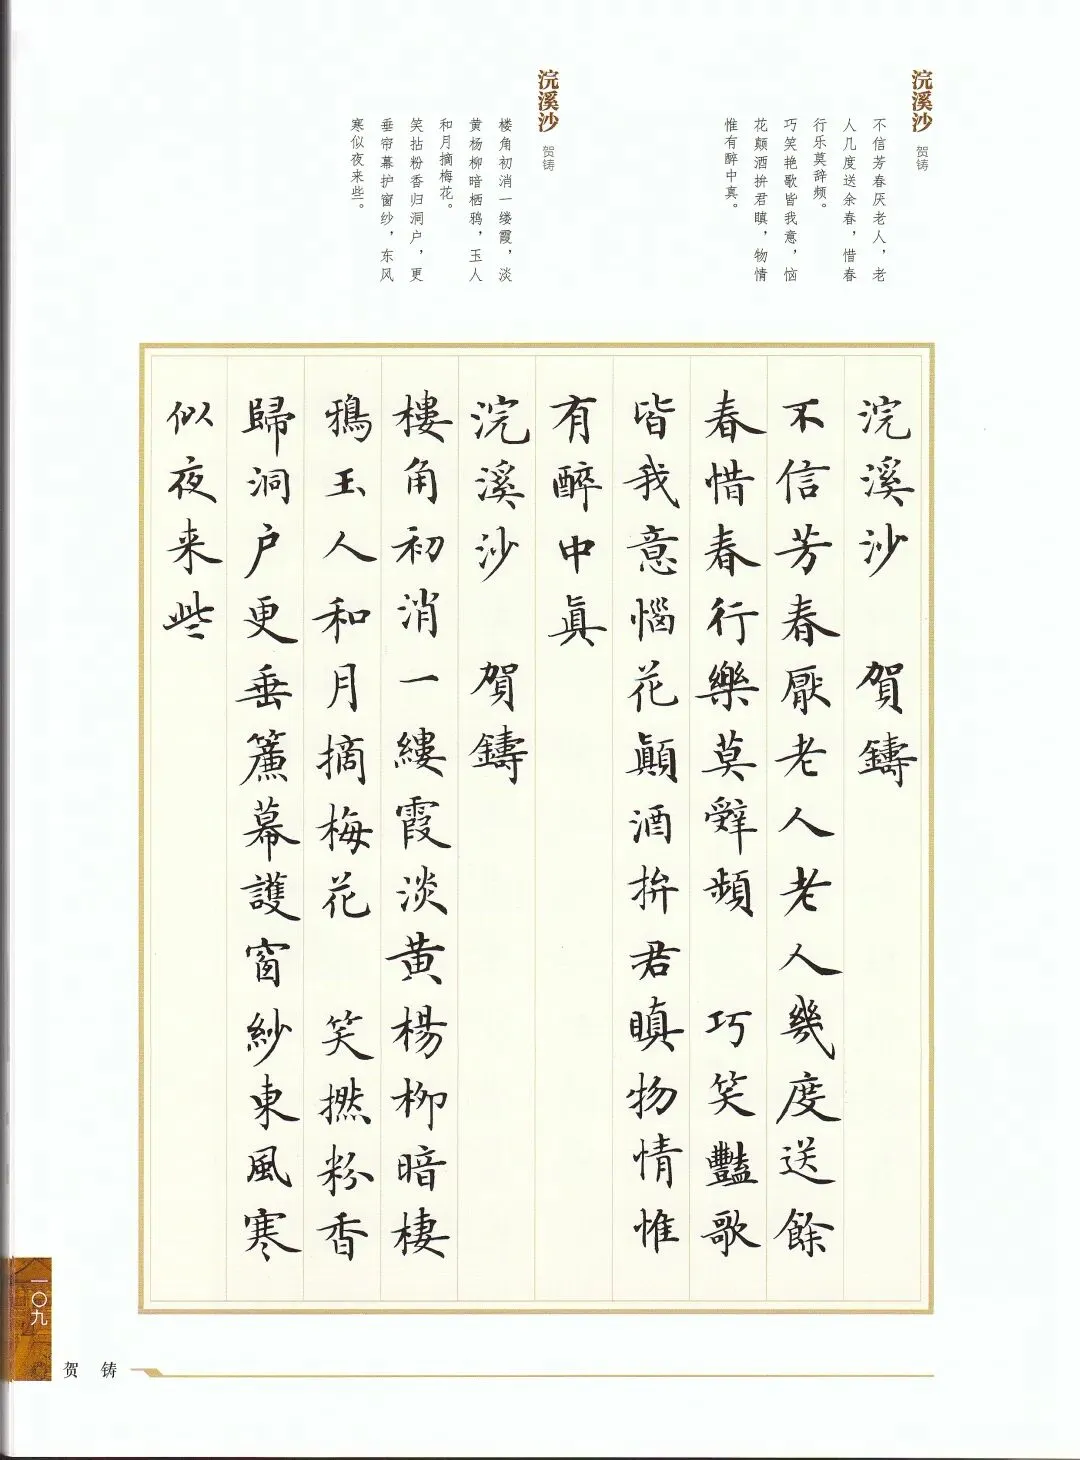 浣溪沙 贺铸
不信芳春厌老人，老
人几度送余春，惜春
行乐莫辞频。
巧笑艳歌皆我意，恼
花颠酒拚君瞋，物情
惟有醉中真。
浣溪沙 贺铸
楼角初消一缕霞，淡
黄杨柳暗栖鸦，玉人
和月摘梅花。
笑拈粉香归洞户，更
垂帘幕护窗纱，东风
寒似夜来些。
浣溪沙 賀鑄
不信芳春厭老人老人幾度送餘
春惜春行樂莫辤頻 巧笑豔歌
皆我意惱花顛酒拚君瞋物情惟
有醉中眞
浣溪沙 賀鑄
樓角初消一縷霞淡黄楊柳暗棲
鴉玉人和月摘梅花 笑撚粉香
歸洞户更垂簾幕護窗紗東風寒
似夜来些
一〇九
贺铸